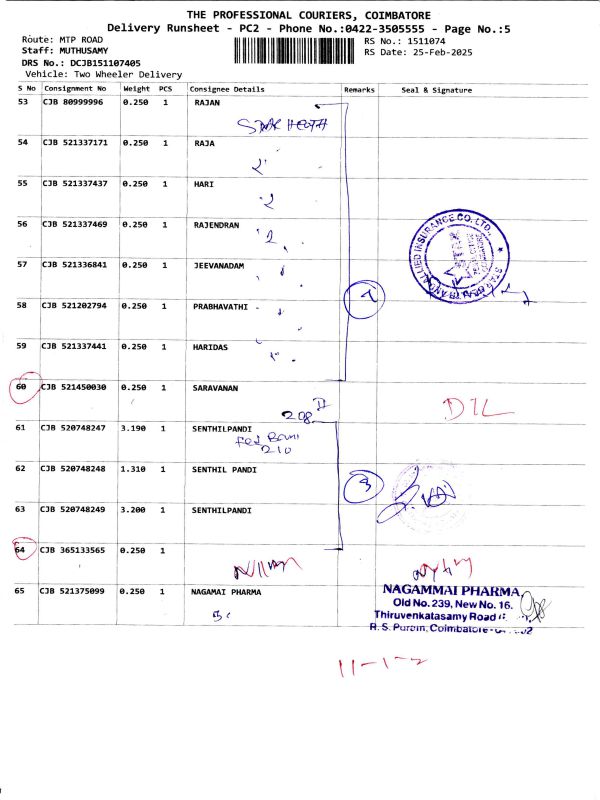 THE PROFESSIONAL COURIERS, COIMBATORE
Delivery Runsheet - PC2 - Phone No.:0422-3505555 - Page No.:5
Route: MTP ROAD
RS No.: 1511074
Staff: MUTHUSAMY
RS Date: 25-Feb-2025
DRS No.: DCJB151107405
Vehicle: Two Wheeler Delivery
S No Consignment No Weight PCS Consignee Details Remarks Seal & Signature
53 CJB 80999996 0.250 1 RAJAN
54 CJB 521337171 0.250 1 RAJA
55 CJB 521337437 0.250 1 HARI
56 CJB 521337469 0.250 1 RAJENDRAN
57 CJB 521336841 0.250 1 JEEVANADAM
58 CJB 521202794 0.250 1 PRABHAVATHI -
59 CJB 521337441 0.250 1 HARIDAS
60 CJB 521450030 0.250 1 SARAVANAN
208
DTL
61 CJB 520748247 3.190 1 SENTHILPANDI
210
62 CJB 520748248 1.310 1 SENTHIL PANDI
3
63 CJB 520748249 3.200 1 SENTHILPANDI
64 CJB 365133565 0.250 1
65 CJB 521375099 0.250 1 NAGAMAI PHARMA
NAGAMMAI PHARMA,
Old No. 239, New No. 16.
Thiruvenkatasamy Road
R. S. Puram, Coimbatore-
11-1-2